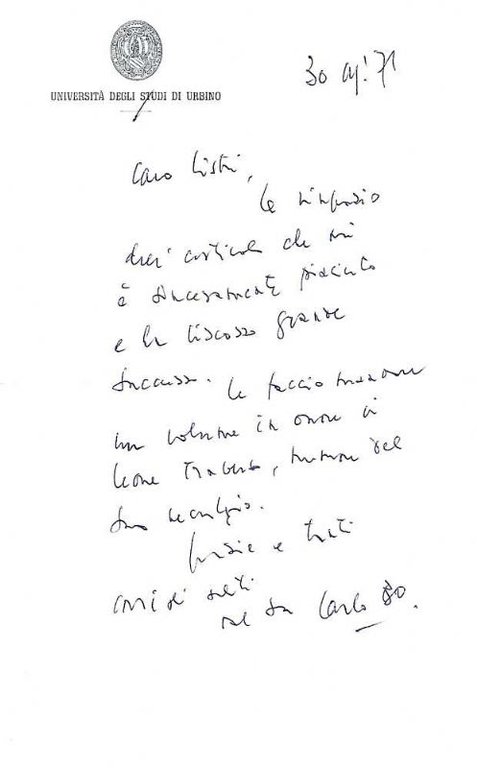 UNIVERSITÀ DEGLI STUDI DI URBINO
30 '71
Caro Listri,
Le ringrazio
dell'articolo che mi
è sinceramente piaciuto
e ha riscosso grande
successo. Le faccio mandare
un volume in onore di
Leone Traverso,
suo
Grazie e tanti
cordiali saluti
dal suo Carlo Bo.